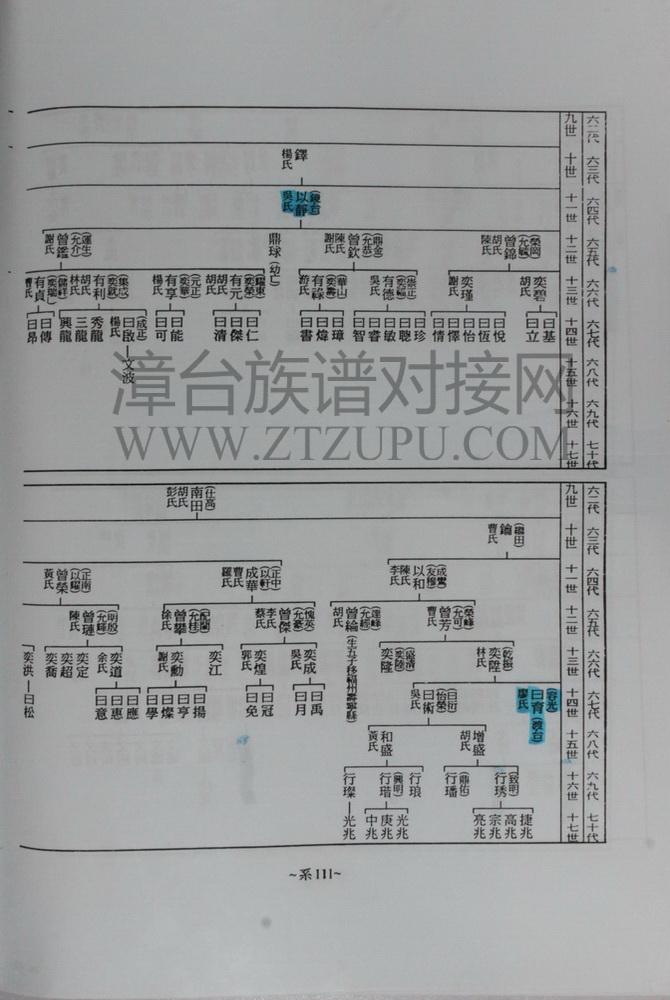 六二代 九世
六三代 十世
六四代 十一世
六五代 十二世
六六代 十三世
六七代 十四世
六八代 十五世
六九代 十六世
七十代 十七世
鐸 楊氏
以靜(鏡台) 吳氏
曾錦(榮岡)(允毓) 胡氏 陳氏
曾欽(鼎金)(允恭) 陳氏 謝氏
鼎球(幼亡)
曾鑑(蓮生)(允介) 謝氏
奕碧 胡氏
奕瑾 謝氏
有德(崇正)(奕福) 吳氏
有祿(華山)(奕壽) 游氏
有元(耀東)(奕榮) 胡氏 胡氏
有亨(元正)(奕華) 楊氏
有利(集成)(奕歡) 胡氏 林氏
有貞(儲軒)(奕瑞) 曹氏
曰基
曰立
曰悅
曰恆
曰怡
曰懌
曰情
曰珍
曰聰
曰敏
曰睿
曰智
曰璋
曰煒
曰書
曰仁
曰傑
曰清
曰能
曰可
曰啟(成正) 楊氏
秀龍
三龍
興龍
曰傳
曰昂
文波
漳台族谱对接网
WWW.ZTZUPU.COM
六二代 九世
六三代 十世
六四代 十一世
六五代 十二世
六六代 十三世
六七代 十四世
六八代 十五世
六九代 十六世
七十代 十七世
南田(仕高) 胡氏 彭氏
鑰(繼田) 曹氏
以和(成鸞)(友穆) 陳氏 李氏
成華(正中)(以軒) 曹氏 羅氏
曾榮(正南)(以耀) 黃氏
曾芳(榮峰)(允可) 曹氏
曾綸(達峰)(允經) 胡氏 (生五子移福州壽寧縣)
曾傑(愧英)(允豪) 李氏 蔡氏
曾攀(配蘭)(允桂) 徐氏
曾璉(明殷)(允輝) 陳氏
奕陞(乾振) 林氏
奕隆(奕陸)
奕成 吳氏
奕煌 郭氏
奕江
奕勳 謝氏
奕道 余氏
奕定
奕超
奕喬
奕洪
曰育(容光)(毅台) 廖氏
曰術(曰衍)(怡榮) 吳氏
曰禹
曰月
曰冠
曰免
曰揚
曰亨
曰燦
曰學
曰應
曰惠
曰意
曰松
增盛 胡氏
和盛 黃氏
行琇(致明)
行璠(鼎佑)
行琅
行瑎(興明)
行璨
捷兆
高兆
宗兆
亮兆
光兆
庚兆
中兆
光兆
~系111~